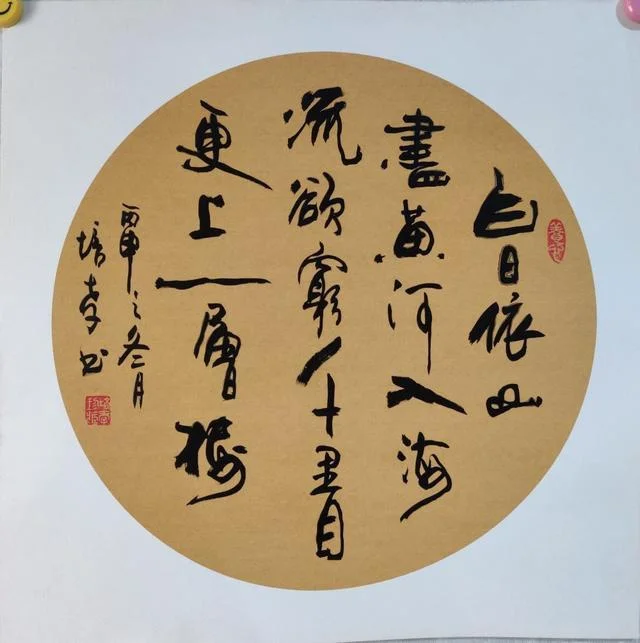 白日依山
盡黄河入海
流欲窮千里目
更上一層樓
丙申之冬月
培 书